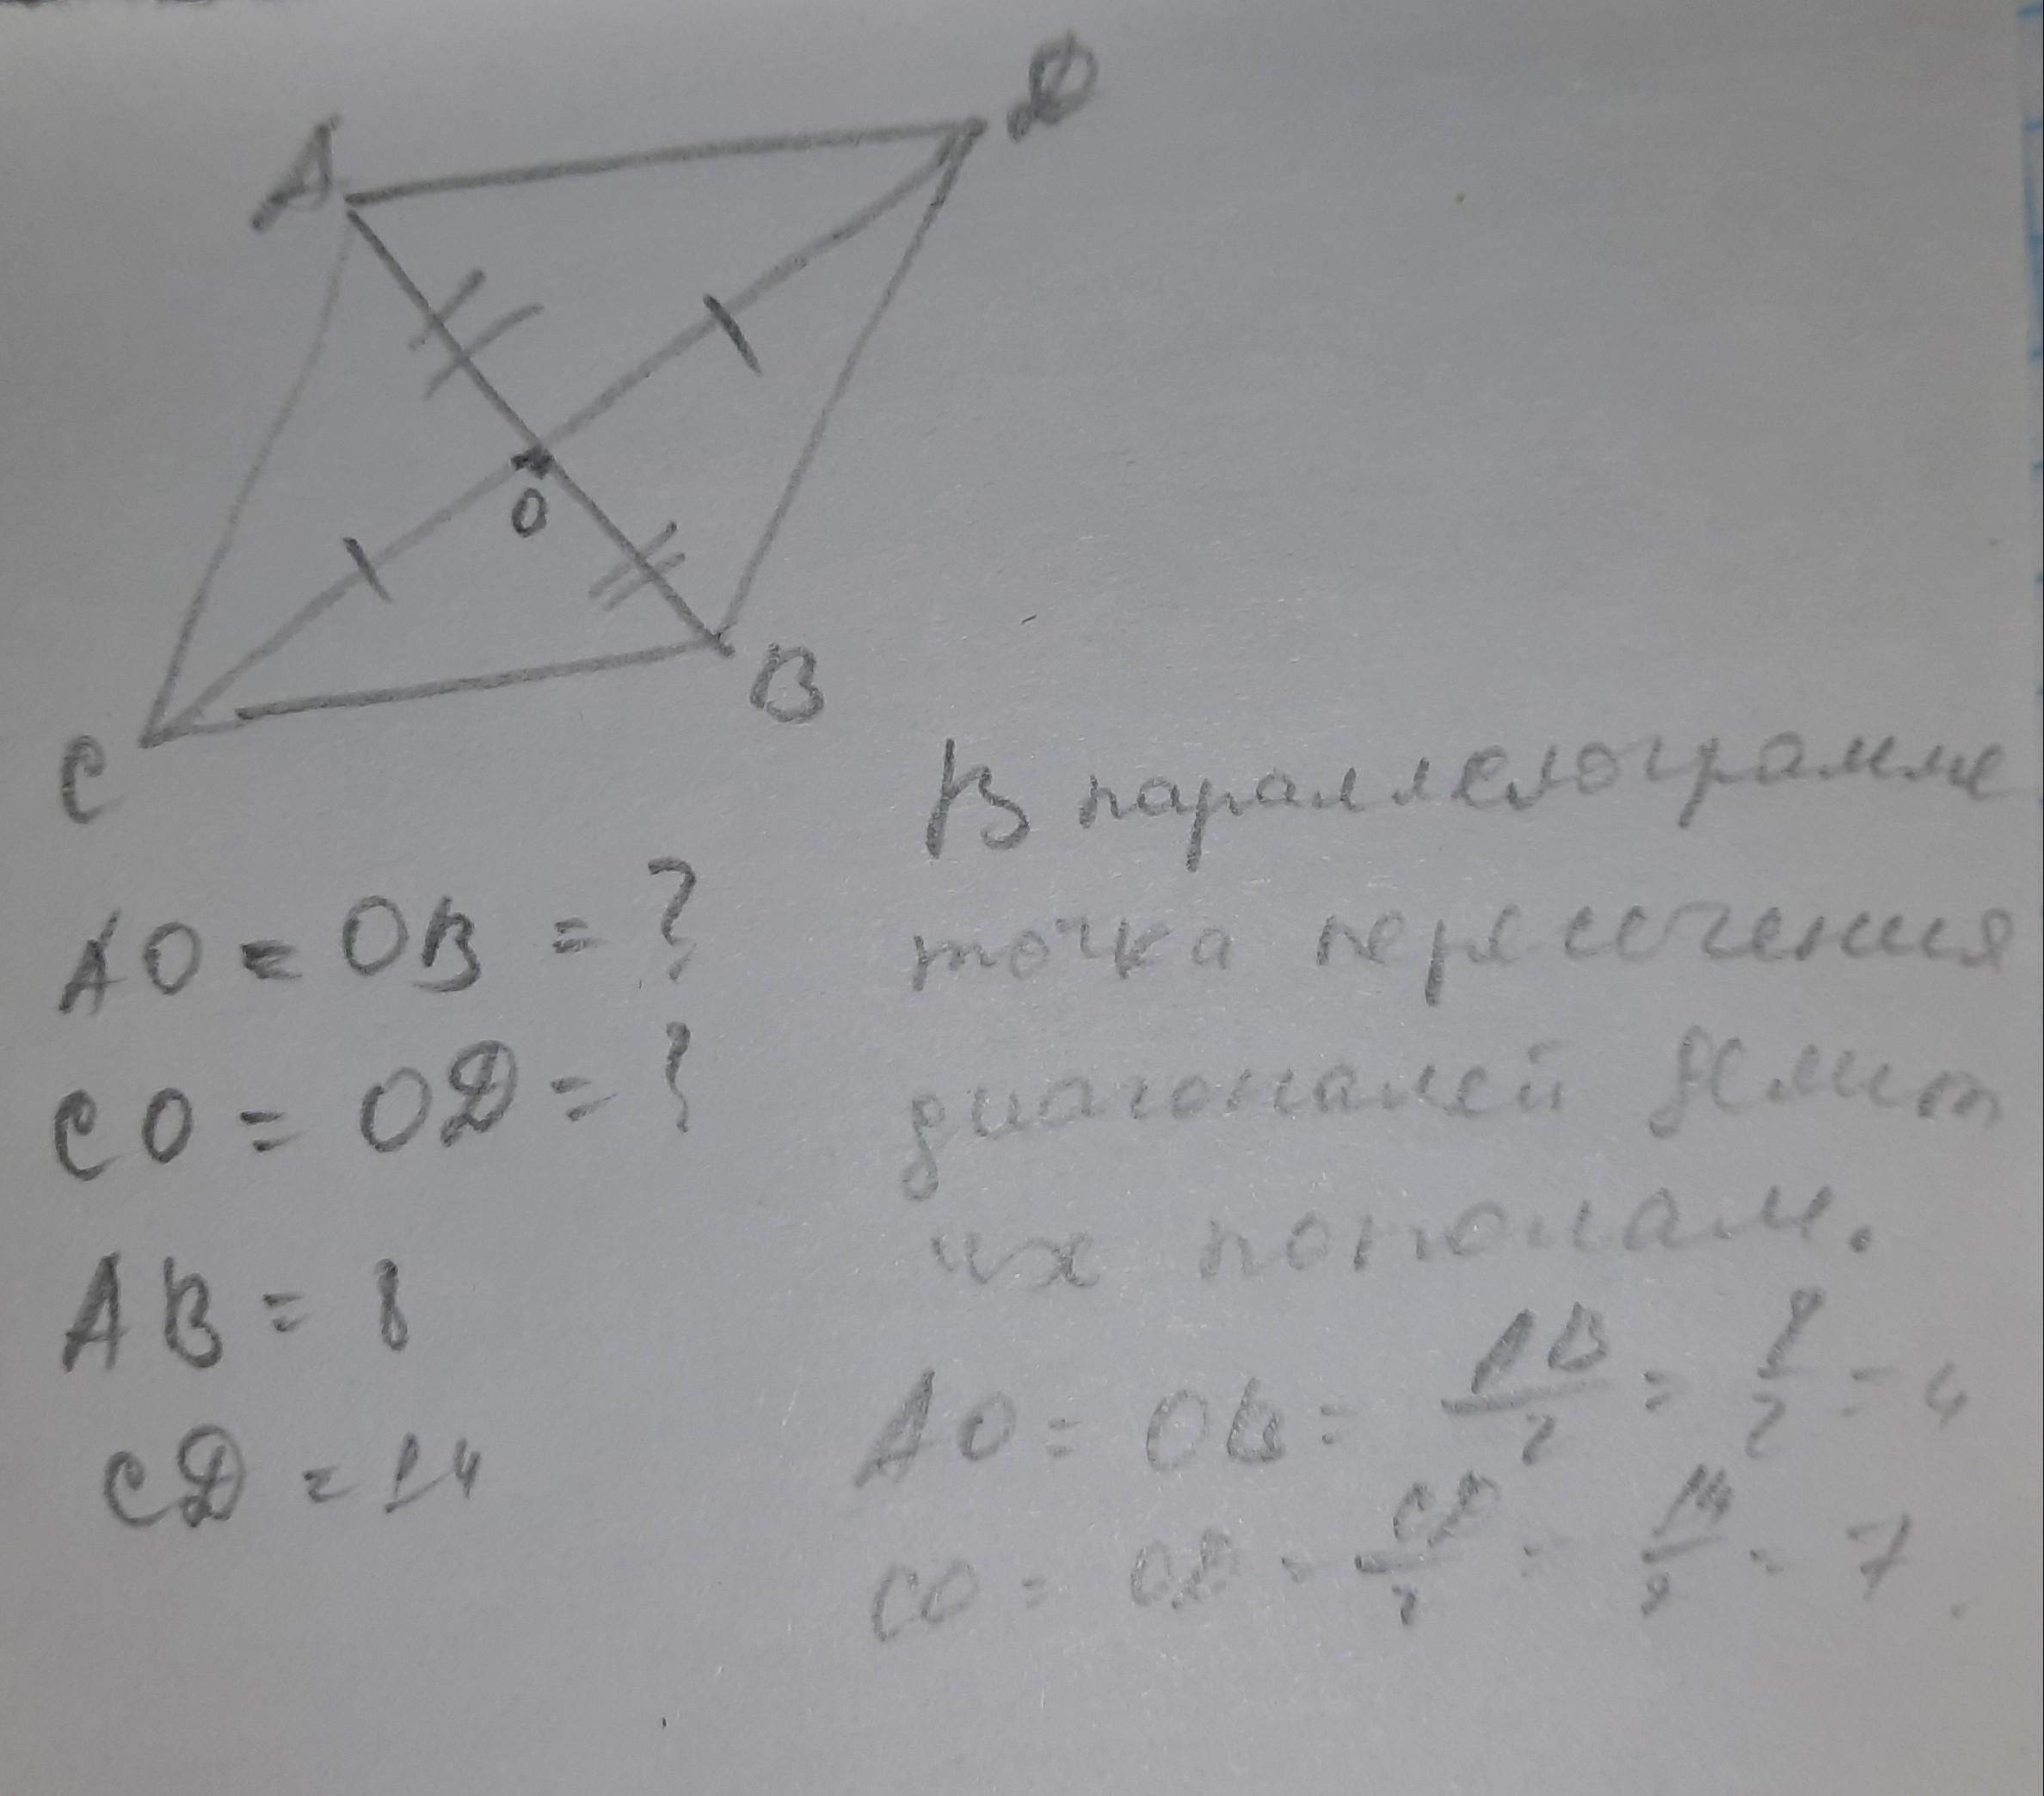 A
D
O
C
B
AO = OB = ?
CO = OD = ?
AB = 8
CD = 14
В параллелограмме
точка пересечения
диагоналей делит
их пополам.
AO = OB = AB/2 = 8/2 = 4
CO = OD = CD/2 = 14/2 = 7.